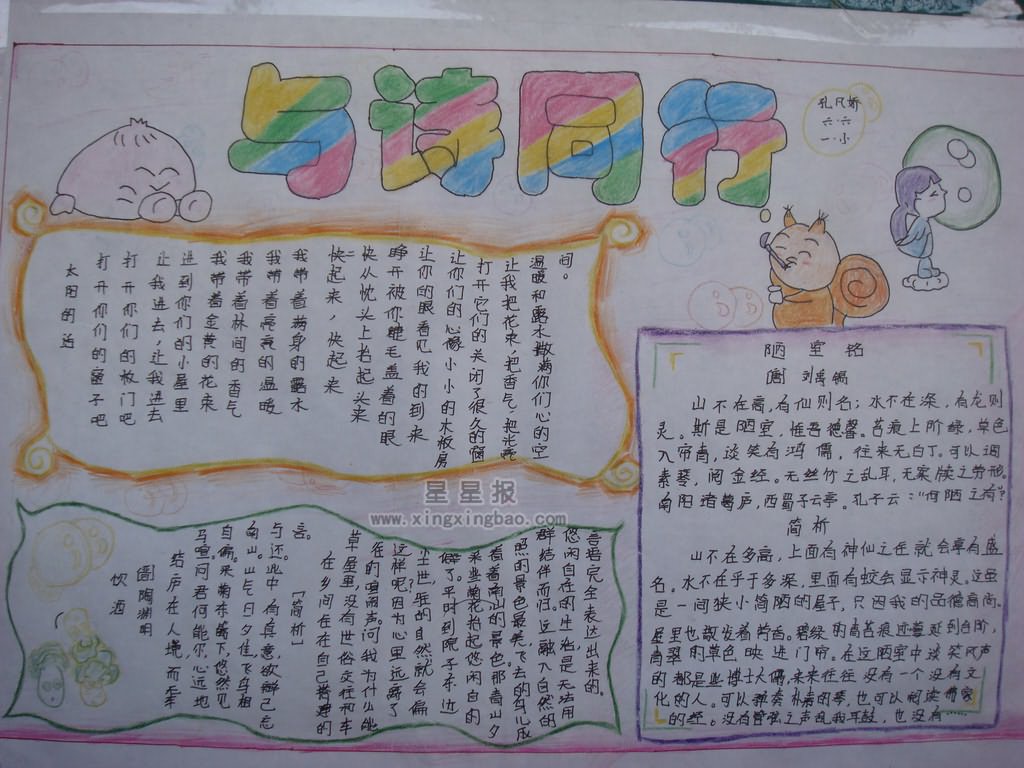 与诗同行
孔凡娇
六·六
一·小
太阳的话
打开你们的窗子吧
打开你们的板门吧
让我进去,让我进去
进到你们的小屋里
我带着金黄的花束
我带着林间的香气
我带着亮亮的温暖
我带着满身的露水
快起来,快起来
快从枕头上抬起头来
睁开被你睫毛盖着的眼
让你的眼看见我的到来
让你们的心像小小的木板房
打开它们的关闭了很久的窗
让我把花束,把香气,把光亮
温暖和露水撒满你们心的空
间。
陋室铭
[唐] 刘禹锡
山不在高,有仙则名;水不在深,有龙则
灵。斯是陋室,惟吾德馨。苔痕上阶绿,草色
入帘青,谈笑有鸿儒,往来无白丁。可以调
素琴,阅金经。无丝竹之乱耳,无案牍之劳形。
南阳诸葛庐,西蜀子云亭。孔子云:"何陋之有?
简析
山不在多高,上面有神仙之住就会享有盛
名。水不在乎于多深,里面有蛟会显示神灵。这虽
是一间狭小简陋的屋子,只因我的品德高尚。
屋里也散发着芳香。碧绿的青苔痕迹蔓延到台阶,
青翠的草色映进门帘。在这陋室中谈笑风声
的都是些博士大儒,来来往往没有一个没有文
化的人。可以弹奏朴素的琴,也可以阅读佛家
的经。没有管弦之声乱我耳鼓,也没有……
星星报
www.xingxingbao.com
饮酒
陶渊明
结庐在人境而车
马喧问君何能尔心远地
自偏。采菊东篱下,悠然见
南山。山气日夕佳,飞鸟相
与还。此中有真意,欲辩已忘
言。
[简析]
在乡间住在自己搭建的
草屋里,没有世俗交往和车
在的喧闹。问我为什么能
这样呢因为心里远离了
尘世,住的自然就会偏
僻了。平时到院子东边
采些菊花抬起悠闲自的
看着南山的景色那着山夕
照的景色最美,飞去的鸟儿成
群结伴而归。这融入自然的
悠闲自在的生活,是无法用
言语完全表达出来的。